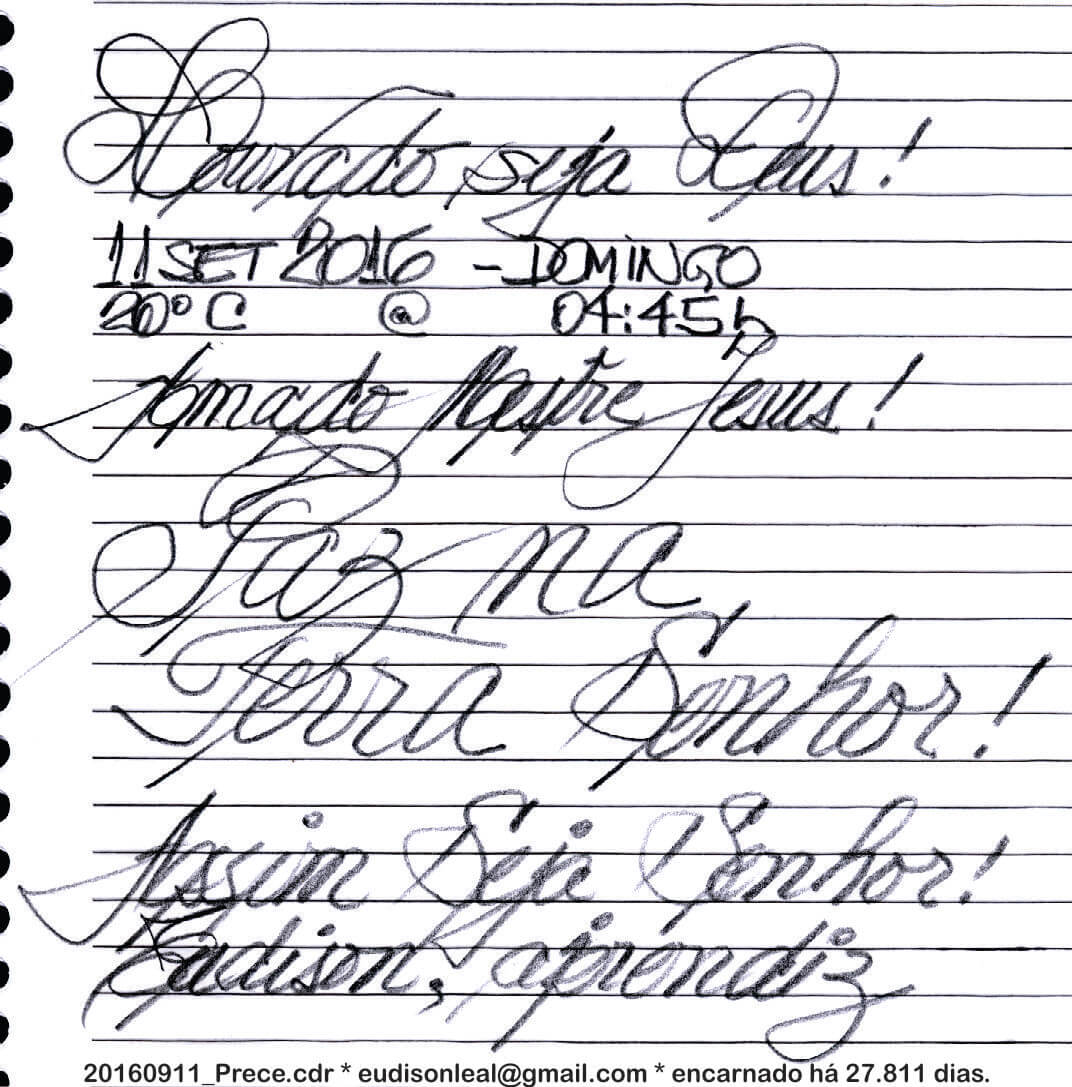 Louvado seja Deus!
11 SET 2016 - DOMINGO
20°C @ 04:45h
Amado Mestre Jesus!
Paz na
Terra Senhor!
Assim Seja Senhor!
Eudison, aprendiz
20160911_Prece.cdr * eudisonleal@gmail.com * encarnado há 27.811 dias.